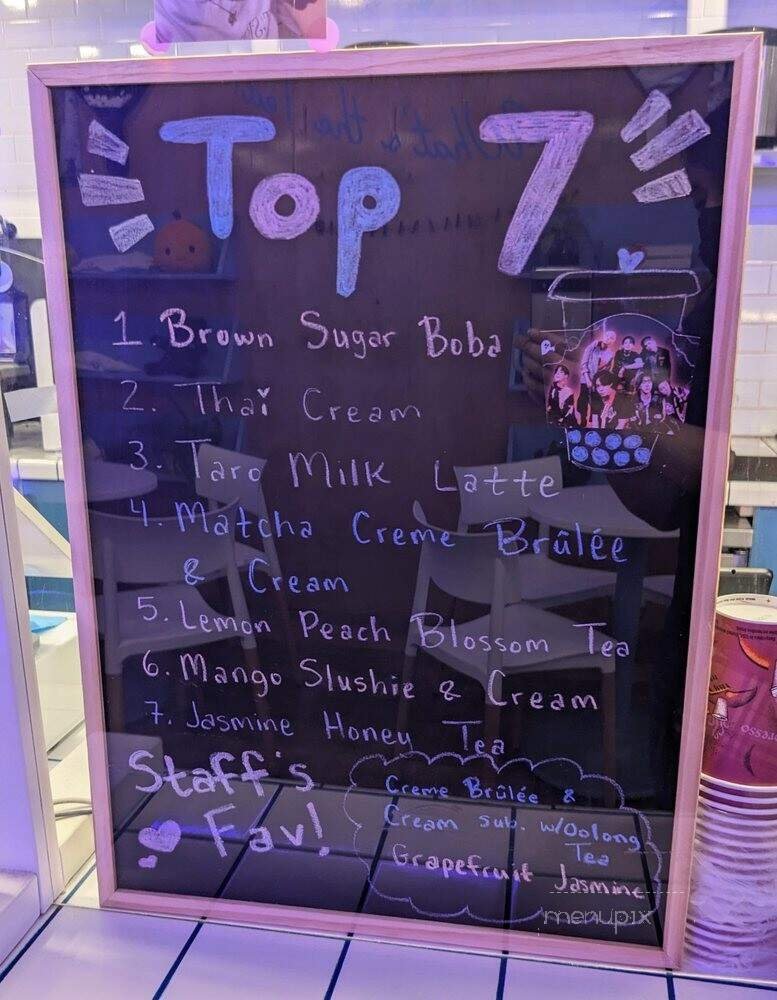 What's the Tea
Top 7
1 Brown Sugar Boba
2. Thai Cream
3. Taro Milk Latte
4. Matcha Creme Brûlée
& Cream
5. Lemon Peach Blossom Tea
6. Mango Slushie & Cream
7. Jasmine Honey Tea
Staff's
Fav!
Creme Brûlée &
Cream sub. w/Oolong
Tea
Grapefruit Jasmine
menupix